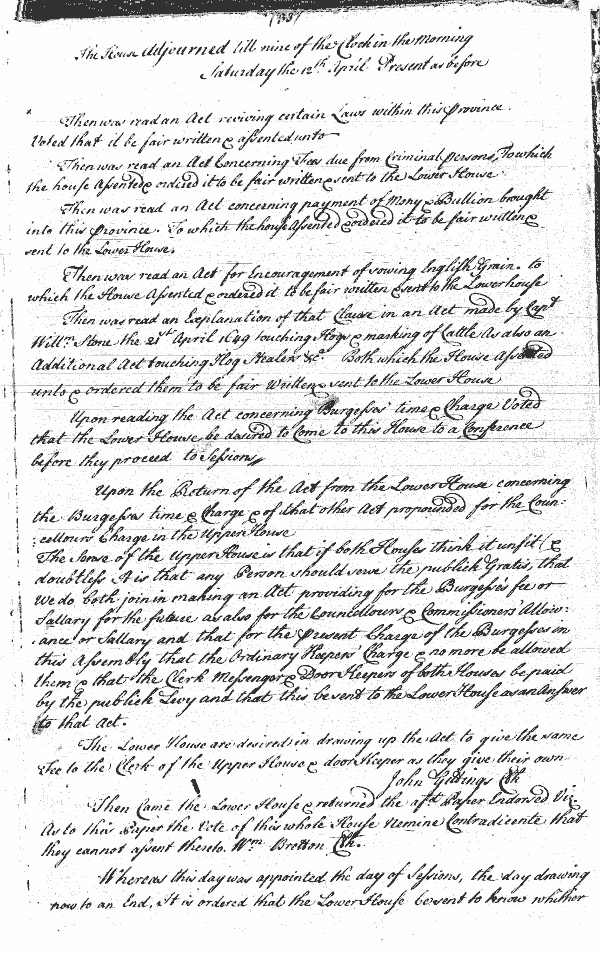 The House adjourned till nine of the Clock in the Morning
Saturday the 12th April Present as before
Then was read an Act reviving certain Laws within this Province.
Voted that it be fair written & assented unto
Then was read an Act Concerning Fees due from Criminal persons, To which
the house Assented & ordered it to be fair written & sent to the Lower House.
Then was read an Act concerning payment of Mony & Bullion brought
into this Province. To which the house Assented & ordered it to be fair written &
sent to the Lower House.
Then was read an Act for Encouragement of sowing English Grain. to
which the House Assented & ordered it to be fair written & sent to the Lower house
Then was read an Explanation of that Clause in an Act made by Capt
Willm Stone the 21st April 1649 touching Hogs & marking of Cattle As also an
Additional Act touching Hog Stealers &c. Both which the House Assented
unto & ordered them to be fair Written & sent to the Lower House
Upon reading the Act concerning Burgesses time & Charge Voted
that the Lower House be desired to Come to this House to a Conference
before they proceed to Sessions
Upon the Return of the Act from the Lower House concerning
the Burgesses time & Charge & of that other Act propounded for the Coun:
:cellours Charge in the Upper House
The Sense of the Upper House is that if both Houses think it unfit (&
doubtless it is that any Person should serve the publick Gratis, that
We do both join in making an Act providing for the Burgesses fee or
Sallary for the future as also for the Councellours & Commissioners Allow:
ance or Sallary and that for the Present Charge of the Burgesses in
this Assembly that the Ordinary Keepers Charge & no more be allowed
them & that the Clerk Messenger & Door Keepers of both Houses be paid
by the publick Levy and that this be sent to the Lower House as an Answer
to that Act.
The Lower House are desired in drawing up the Act to give the same
Fee to the Clerk of the Upper House & door Keeper as they give their own
John Gittings Clk
Then Came the Lower House & returned the afd Paper Endorsed Viz.
As to this Paper the Vote of this whole House Nemine Contradicente that
they cannot assent thereto. Wm Bretton Clk.
Whereas this day was appointed the day of Sessions, the day drawing
now to an End, It is ordered that the Lower House be sent to know whither